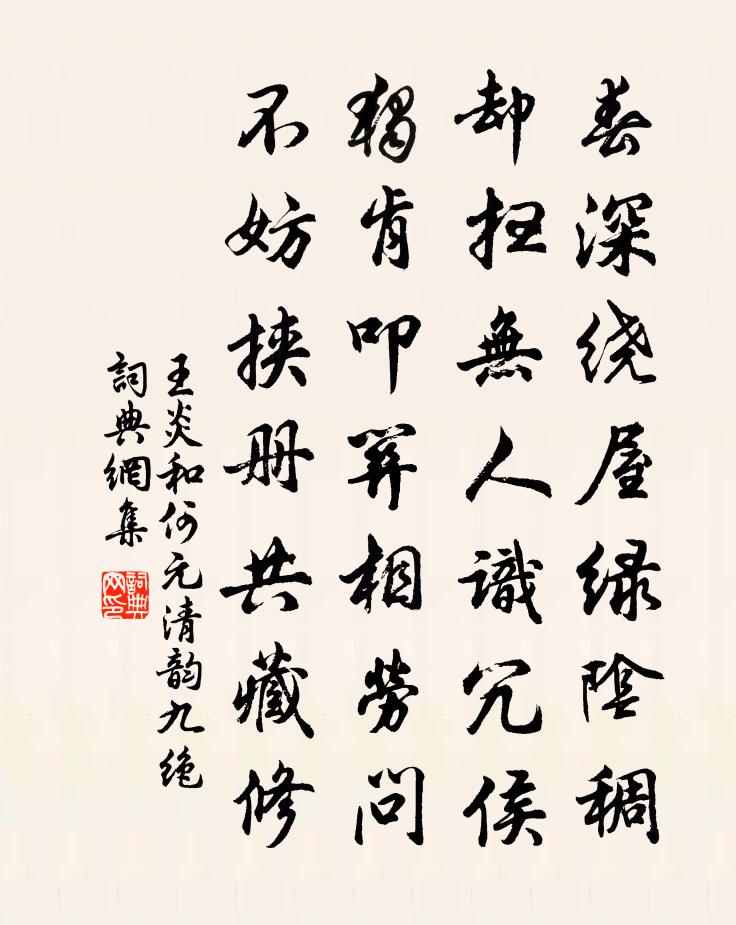 春深绕屋绿陰稠
却扫無人識冗侯
獨肯叩關相勞問
不妨挟册共藏修
王炎和何元清韵九绝
詞典網集
詞典网印